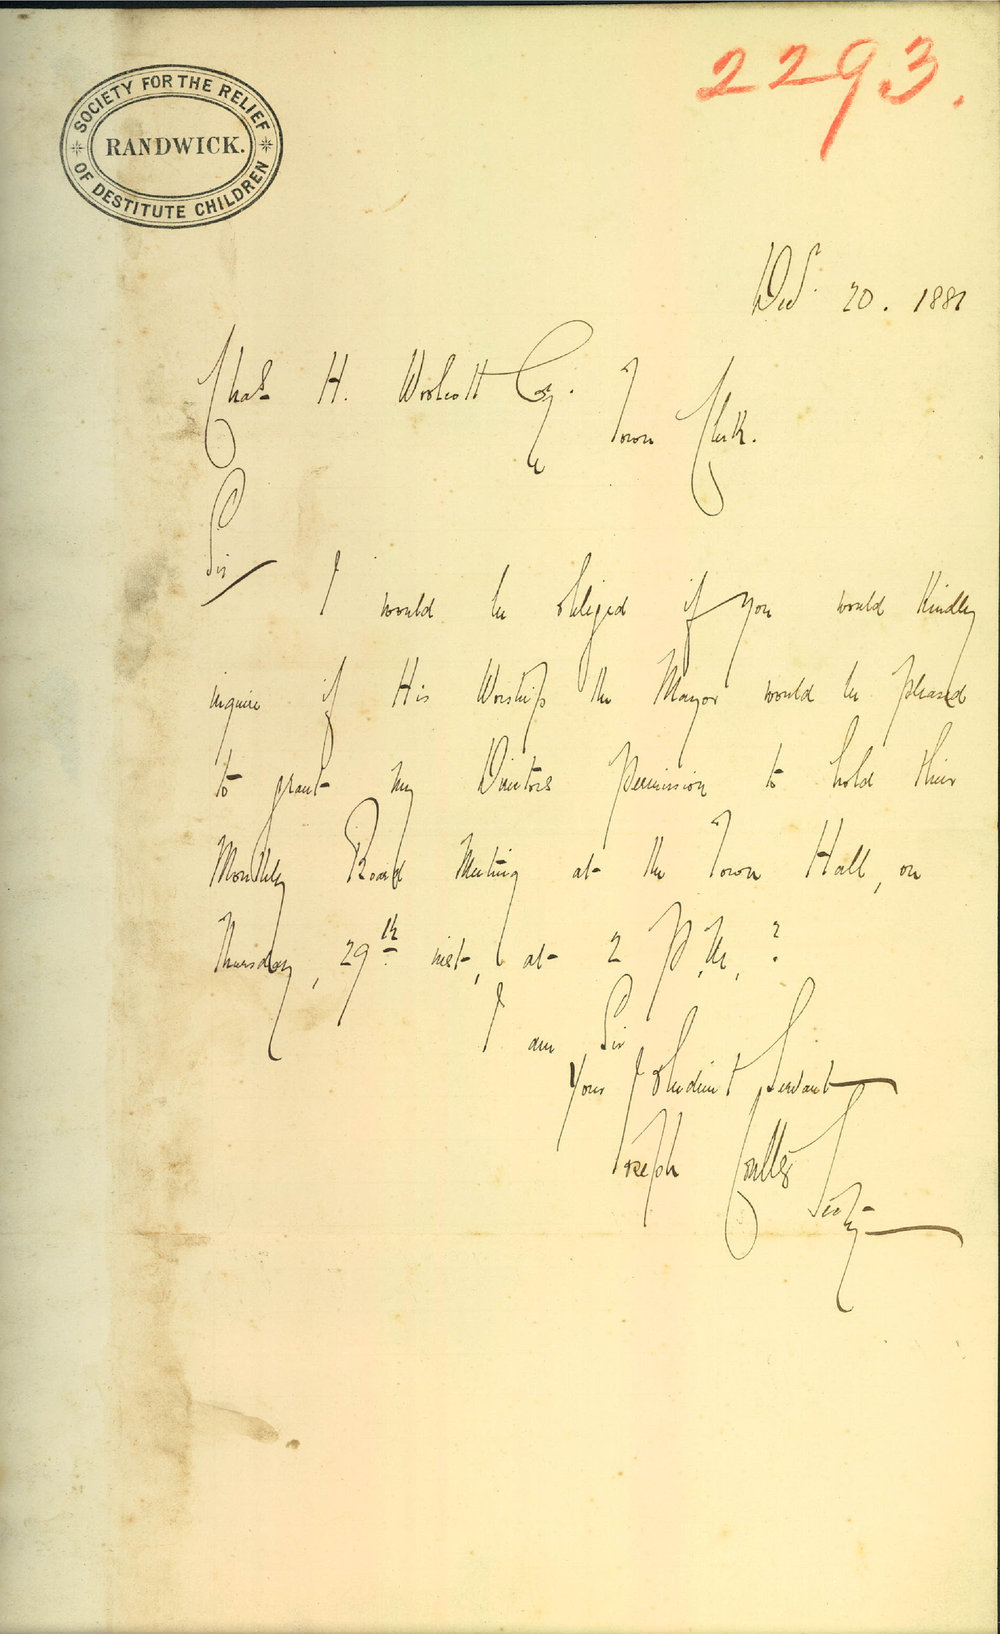 2293.
SOCIETY FOR THE RELIEF
RANDWICK.
OF DESTITUTE CHILDREN
Decr. 20. 1881
Chas. H. Woolcott Esq.
Town Clerk.
Sir
I would be obliged if you would kindly
inquire if His Worship the Mayor would be pleased
to grant my Directors permission to hold their
Monthly Board Meeting at the Town Hall, on
Thursday, 29th inst, at 2 P.M.?
I am Sir
Your Obedient Servant
Joseph Coulter
Secty